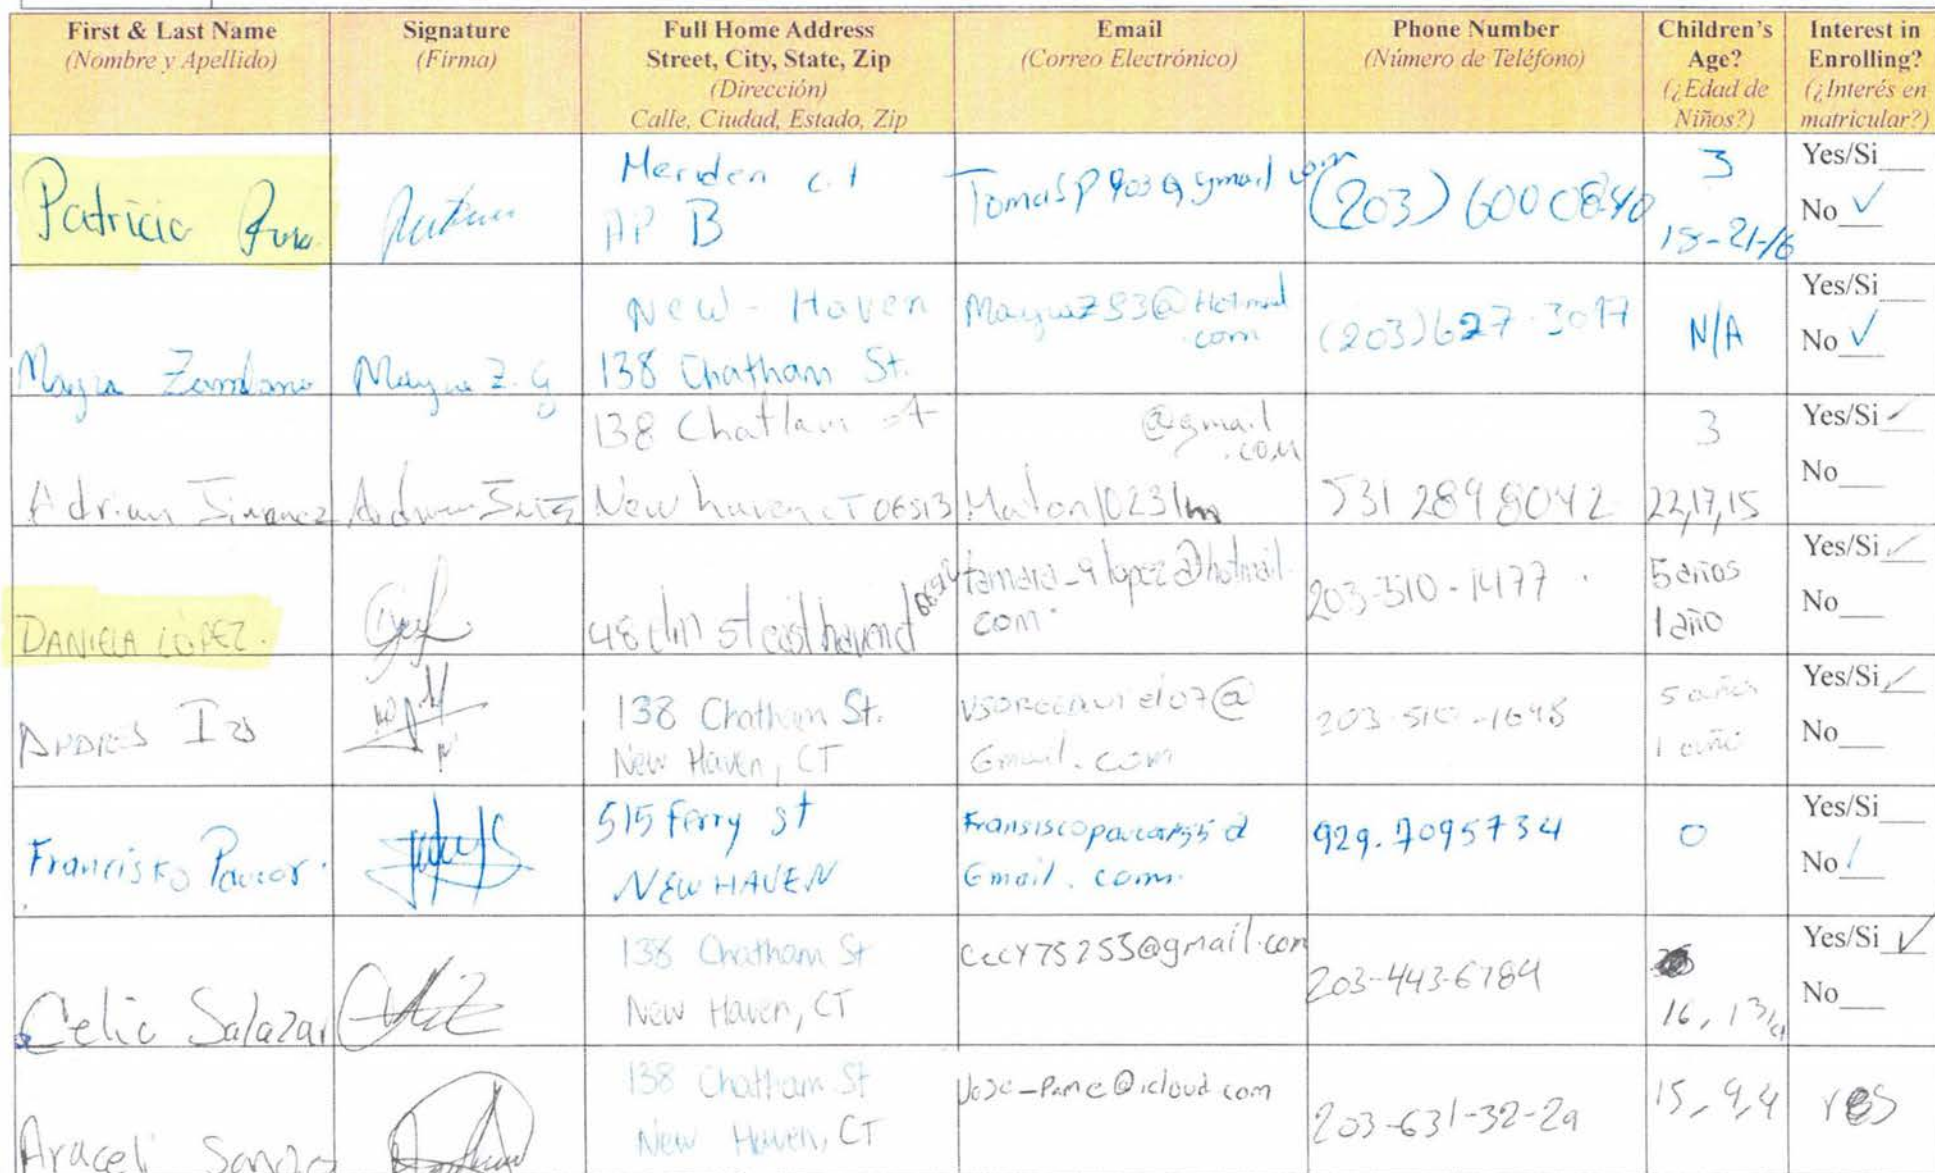 First & Last Name
(Nombre y Apellido)
Signature
(Firma)
Full Home Address
Street, City, State, Zip
(Dirección)
Calle, Ciudad, Estado, Zip
Email
(Correo Electrónico)
Phone Number
(Número de Teléfono)
Children's
Age?
(¿Edad de
Niños?)
Interest in
Enrolling?
(¿Interés en
matricular?)
Patricia
Meriden CT
AP B
(203) 600 0840
3
18-21-16
Yes/Si
No ✓
Mayra Zambrano
Mayra Z. G
New-Haven
138 Chatham St.
@Hotmail
.com
(203)627-3017
N/A
Yes/Si
No ✓
Adrian Jimenez
138 Chatlam st
New haven CT 06513
@gmail
.com
531 289 8042
3
22,17,15
Yes/Si ✓
No
DANIELA LÓPEZ.
48 elm st east haven ct
tamara_91opez@hotmail.
com.
203-510-1477
5 años
1 año
Yes/Si ✓
No
138 Chatham St.
New Haven, CT
Gmail.com
203-510-1648
5 años
1 año
Yes/Si ✓
No
Francisko Paucar.
515 ferry st
NEW HAVEN
Fransiscopaucar55@
Gmail.com.
929.7095734
0
Yes/Si
No /
Celia Salazar
138 Chatham St
New Haven, CT
CecY75255@gmail.com
203-443-6784
16, 13,
Yes/Si ✓
No
Araceli
138 Chatham St
New Haven, CT
@icloud.com
203-631-32-29
15, 9,4
Yes